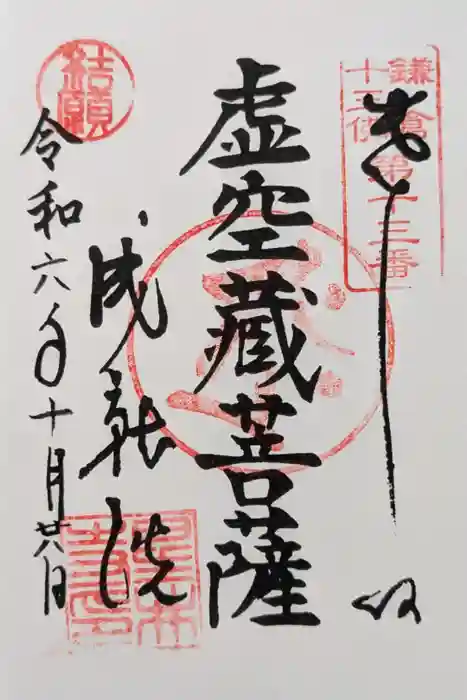 鎌倉
十三佛 第十三番
奉拝
虚空蔵菩薩
成就院
結願
令和六年十月廿六日